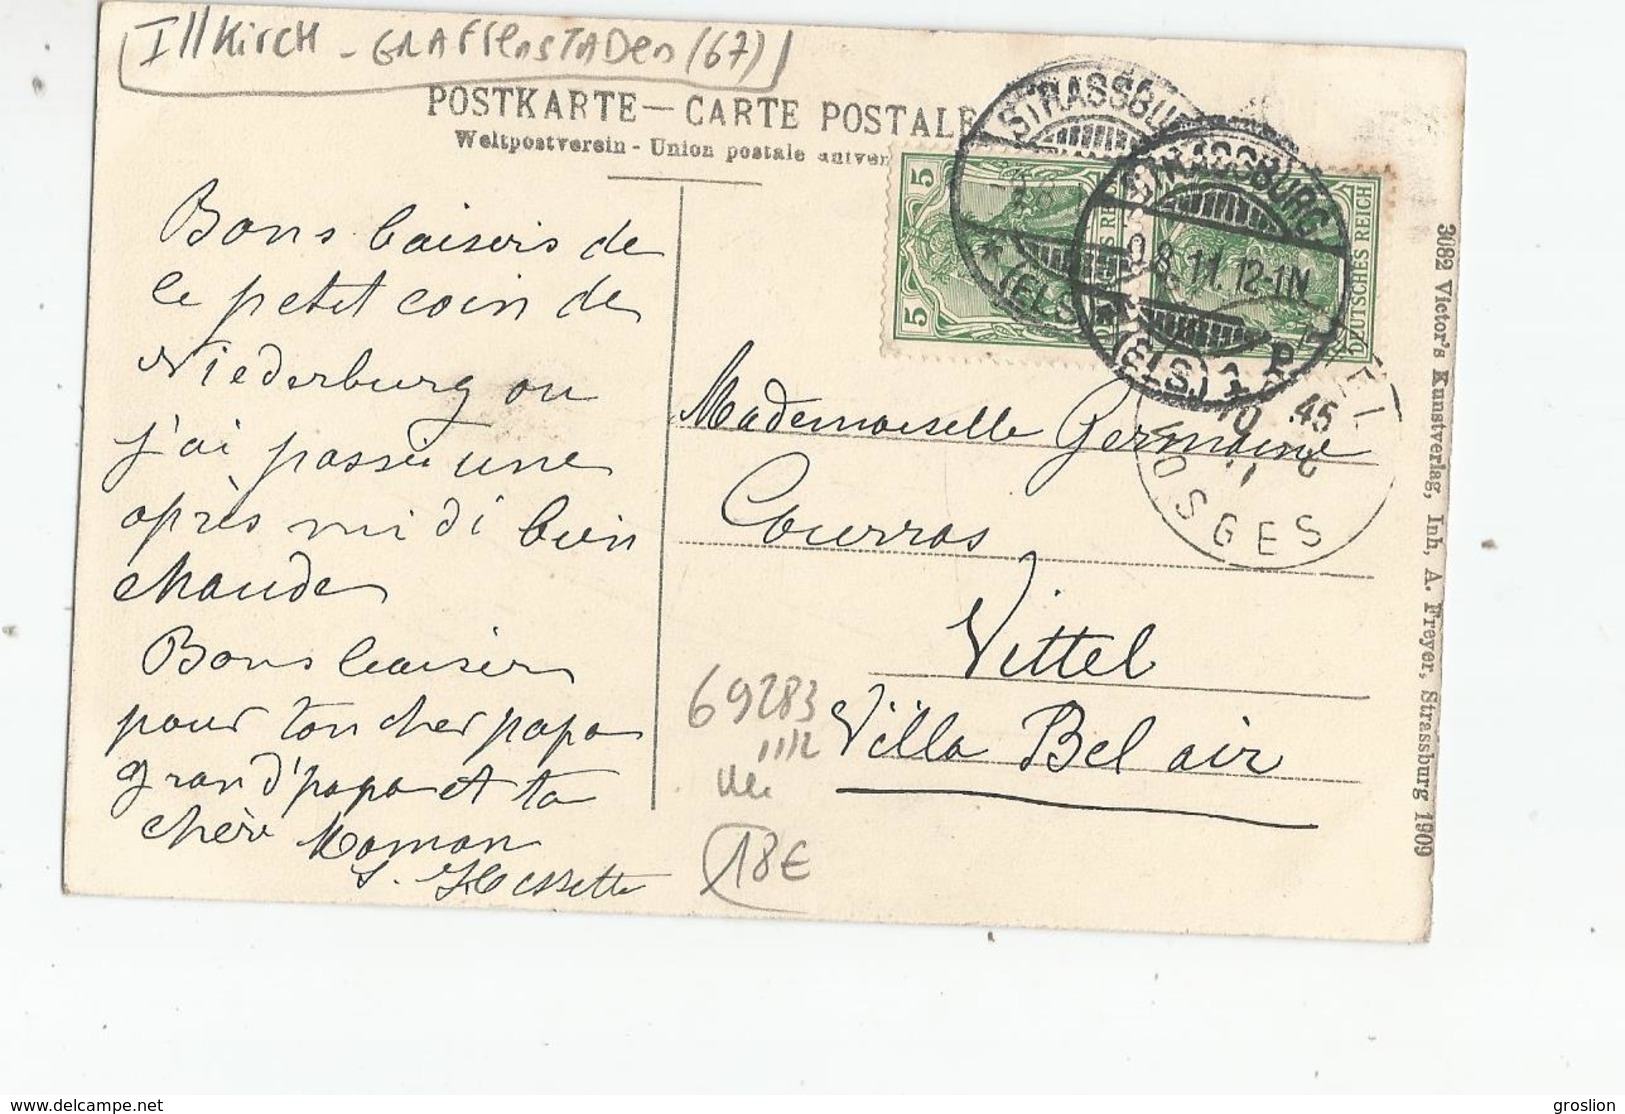 Illkirch - GRAFFENSTADEN (67)
POSTKARTE — CARTE POSTALE
Weltpostverein - Union postale univer
Bons baisers de
ce petit coin de
Niederburg ou
j'ai passé une
après midi bien
chaude
Bons baiser
pour ton cher papa
grand'papa et ta
chère Maman
5
5
DEUTSCHES REICH
STRASSBU
(ELS.)
STRASSBURG
8.11.12-1N.
(ELS.) 1 P
VITTEL
10 45
VOSGES
Mademoiselle Germaine
Courras
Vittel
Villa Bel air
69283
11/12
18€
3082 Victor's Kunstverlag, Inh, A. Freyer, Strassburg 1909
https://www.delcampe.net
groslion